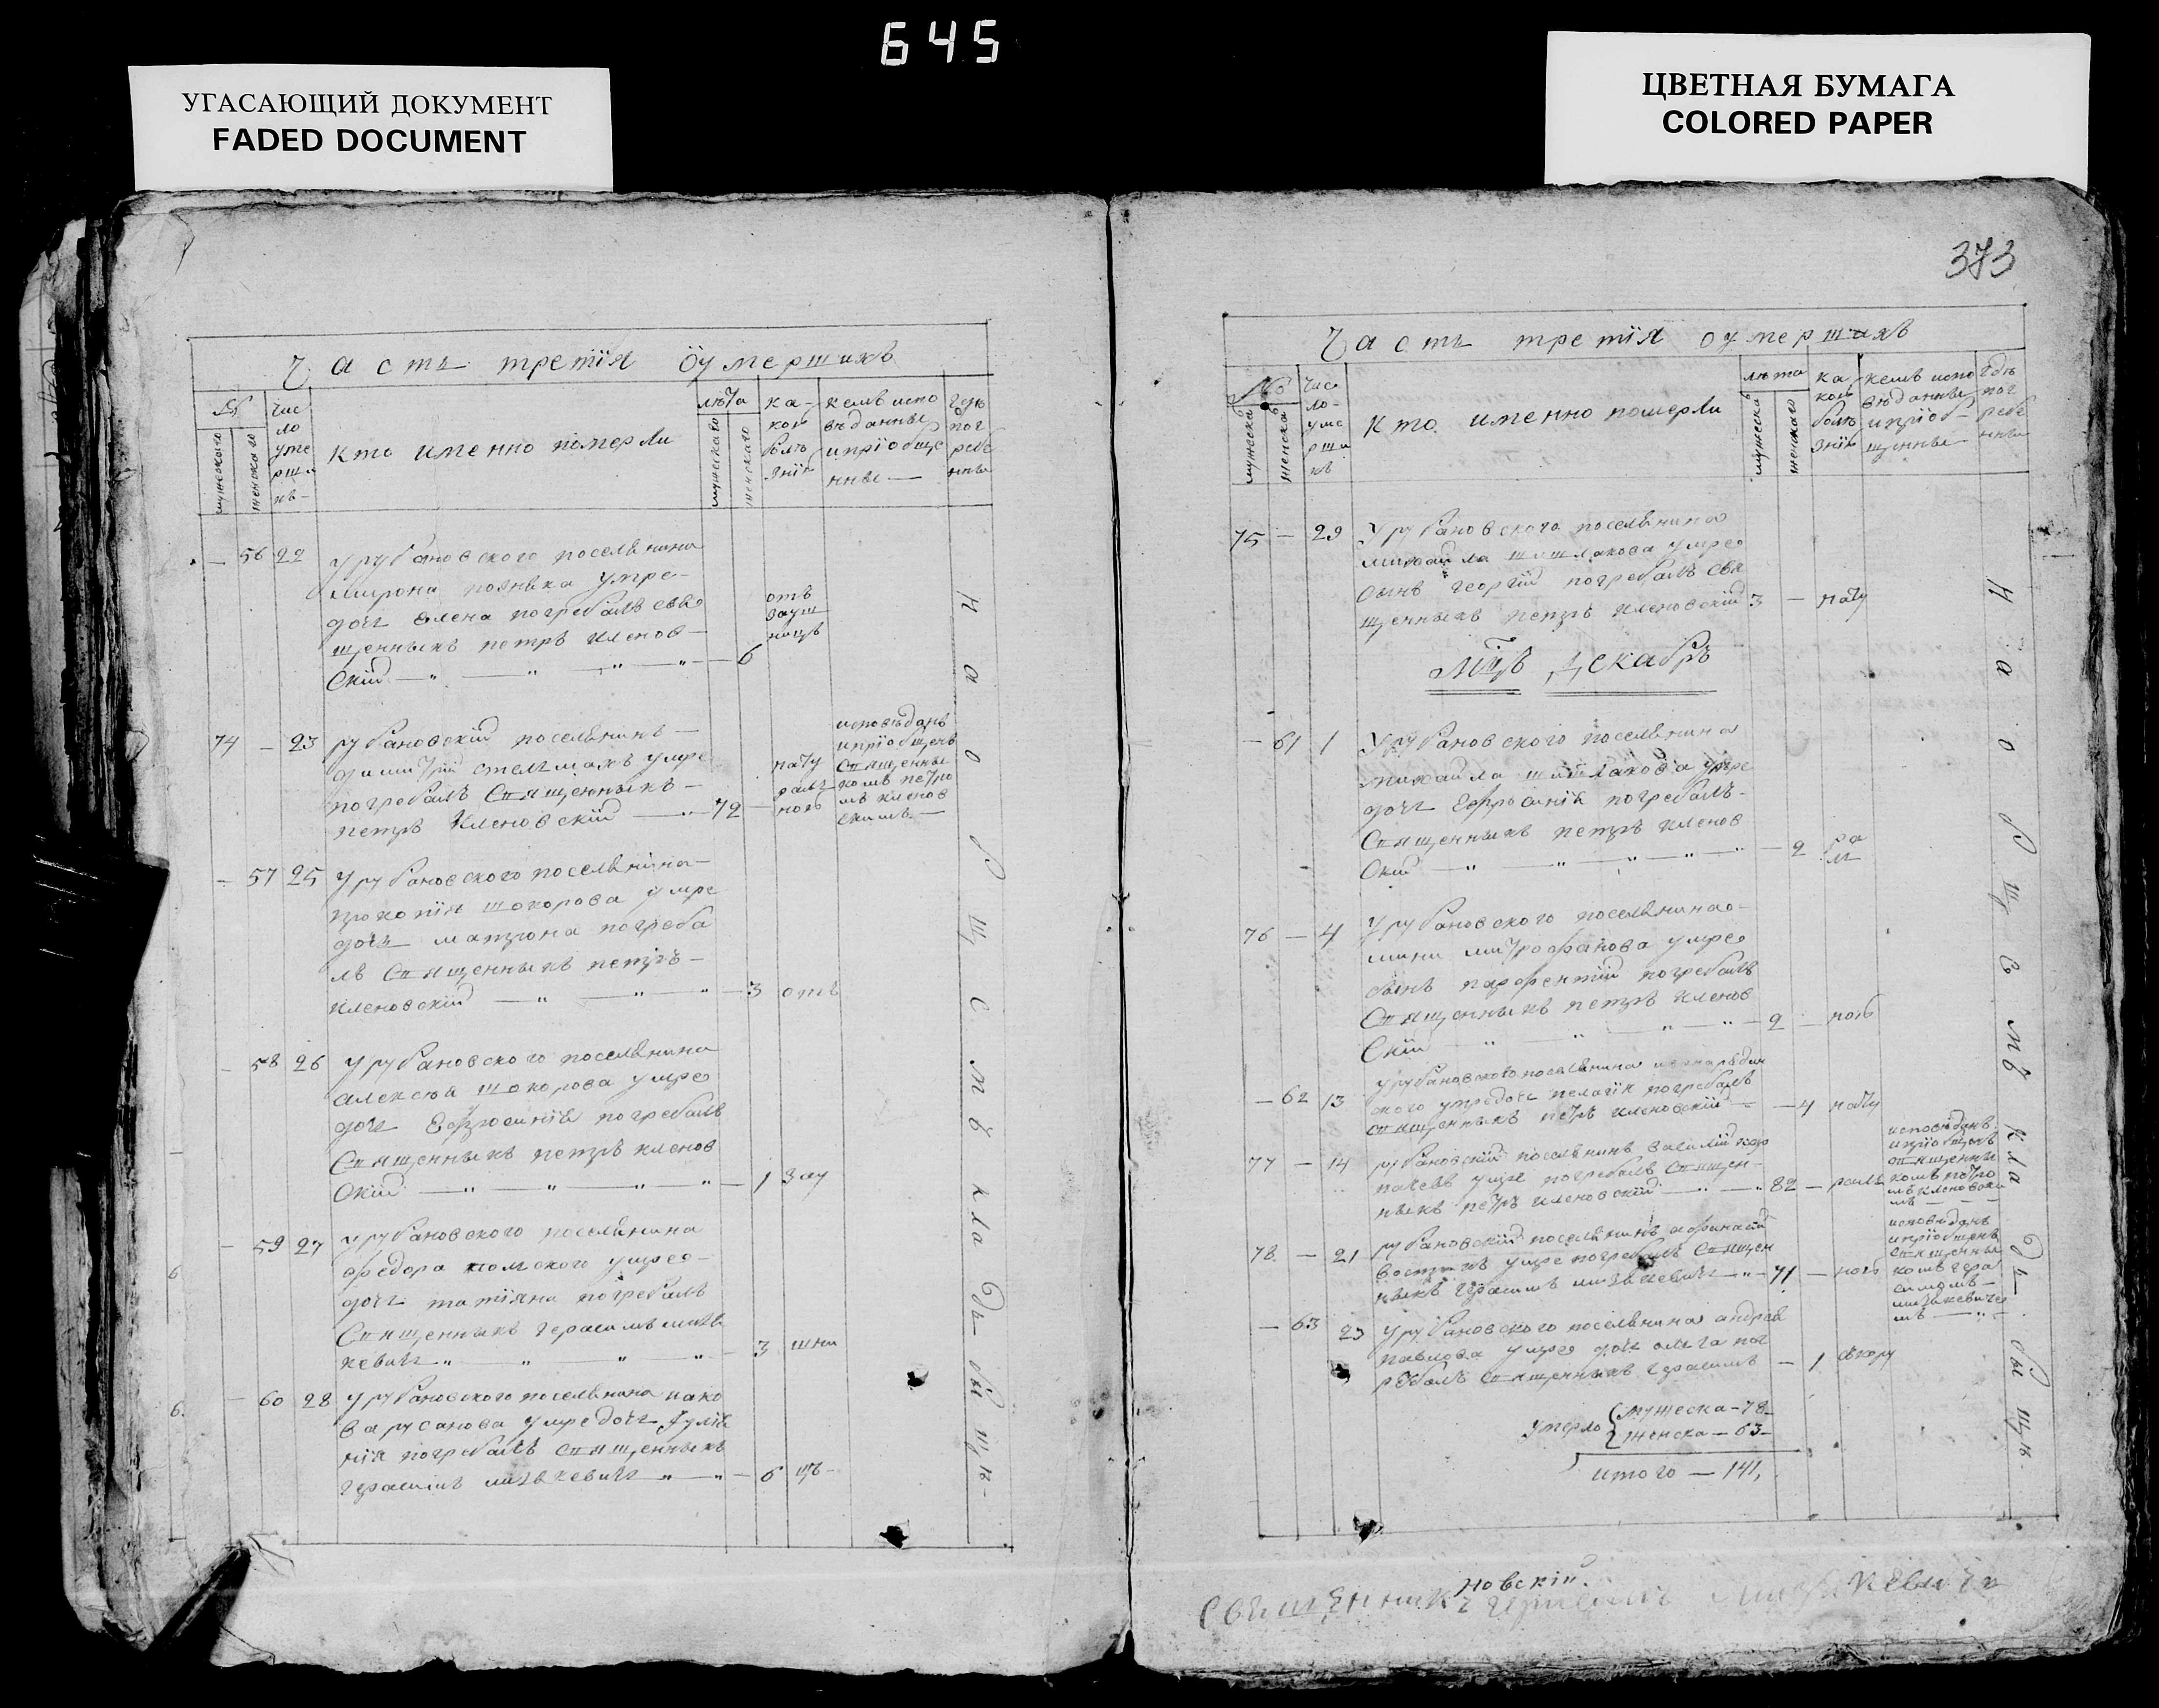 645
УГАСАЮЩИЙ ДОКУМЕНТ
FADED DOCUMENT
ЦВЕТНАЯ БУМАГА
COLORED PAPER
Часть третїя оумершихъ
№
мужескаго
женскаго
Чис
ло
уме
рши
хъ
кто именно померли
лѣта
мужескаго
женскаго
ка-
кой
болѣ
знїи
кемъ испо
вѣданны
и прїобще
нны
Гдѣ
пог
ребе
нны
— 56 22 У рубановского поселянина
мирона
умре
дочь елена погребалъ свя
щенникъ петръ кленов-
скїй — 6
отъ
74 — 23 рубановскїй поселянинъ
димитрїй стельмахъ умре
погребалъ священникъ
петръ кленовскїй — 72 —
исповѣданъ
и прїобщенъ
священни
комъ петро
мъ кленов
скимъ
— 57 25 У рубановского поселянина
прокопїя шокорова умре
дочь матрона погреба
лъ священникъ петръ
кленовскїй — 3
— 58 26 У рубановского поселянина
алексѣя шокорова умре
дочь Ефросинїя погребалъ
священникъ петръ кленов
скїй — 1
— 59 27 У рубановского поселянина
федора
умре
дочь татїяна погребалъ
священникъ герасимъ мицъ
кевичъ — 3
— 60 28 У рубановского поселянина иако
ва русанова умре дочь Іулїя
нїя погребалъ священникъ
герасимъ мицъкевичъ — 6
на общемъ кладъбищѣ
373
Часть третїя оумершихъ
№
мужеска
женска
Чис
ло
уме
рши
хъ
кто именно померли
лѣта
мужеска
женскаго
ка
кой
болѣ
знїи
кемъ испо
вѣданны
и прїоб
щенны
Гдѣ
пог
ребе
нны
75 — 29 У рубановского поселянина
михаила шишлакова умре
сынъ георгїй погребалъ свя
щенникъ петръ кленовскїй 3 —
мцъ декабръ
— 61 1 У рубановского поселянина
михаила шишлакова умре
дочь Ефросинїя погребалъ
священникъ петръ кленов
скїй — 2
76 — 4 У рубановского поселянина
мини митрофанова умре
сынъ парфентїй погребалъ
священникъ петръ кленов
скїй — 2 —
— 62 13 У рубановского поселянина
умре дочь пелагїя погребалъ
священникъ петръ кленовскїй — 4
77 — 14 рубановскїй поселянинъ василїй
умре погребалъ священ-
никъ петръ кленовскїй — 82 —
исповѣданъ
и прїобщенъ
священни
комъ петро
мъ кленовски
мъ
78 — 21 рубановскїй поселянинъ афанасїй
умре погребалъ священ
никъ герасимъ мицъкевичъ — 71 —
исповѣданъ
и прїобщенъ
священни
комъ гера
симомъ
мицькевиче
мъ
— 63 23 У рубановского поселянина андрея
павлова умре дочь ольга пог
ребалъ священникъ герасимъ — 1
на общемъ кладъбищѣ
умерло мужеска — 78
женска — 63
итого — 141
новскїй
священникъ герасимъ мицкевичъ